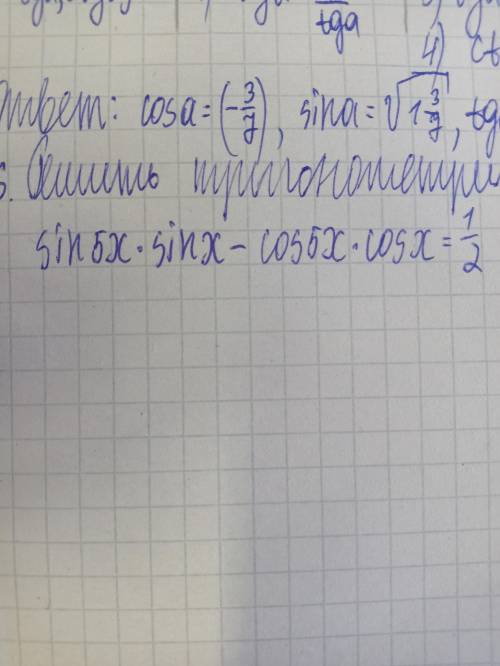 tga
4) ct
Ответ: cosa = (-3/7), sina = √(1 3/7), tga
5. Решить тригонометрич
sin5x · sinx - cos5x · cosx = 1/2